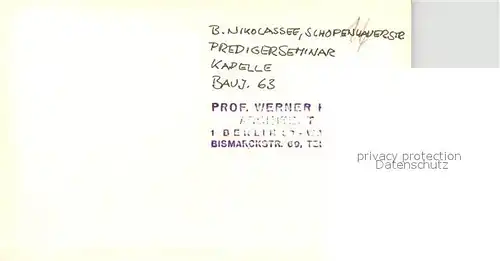 B. NIKOLASSEE, SCHOPENHAUERSTR
PREDIGERSEMINAR
KAPELLE
BAUJ. 63
PROF. WERNER
1 BERLIN
BISMARCKSTR. 69, TEL
privacy protection
Datenschutz